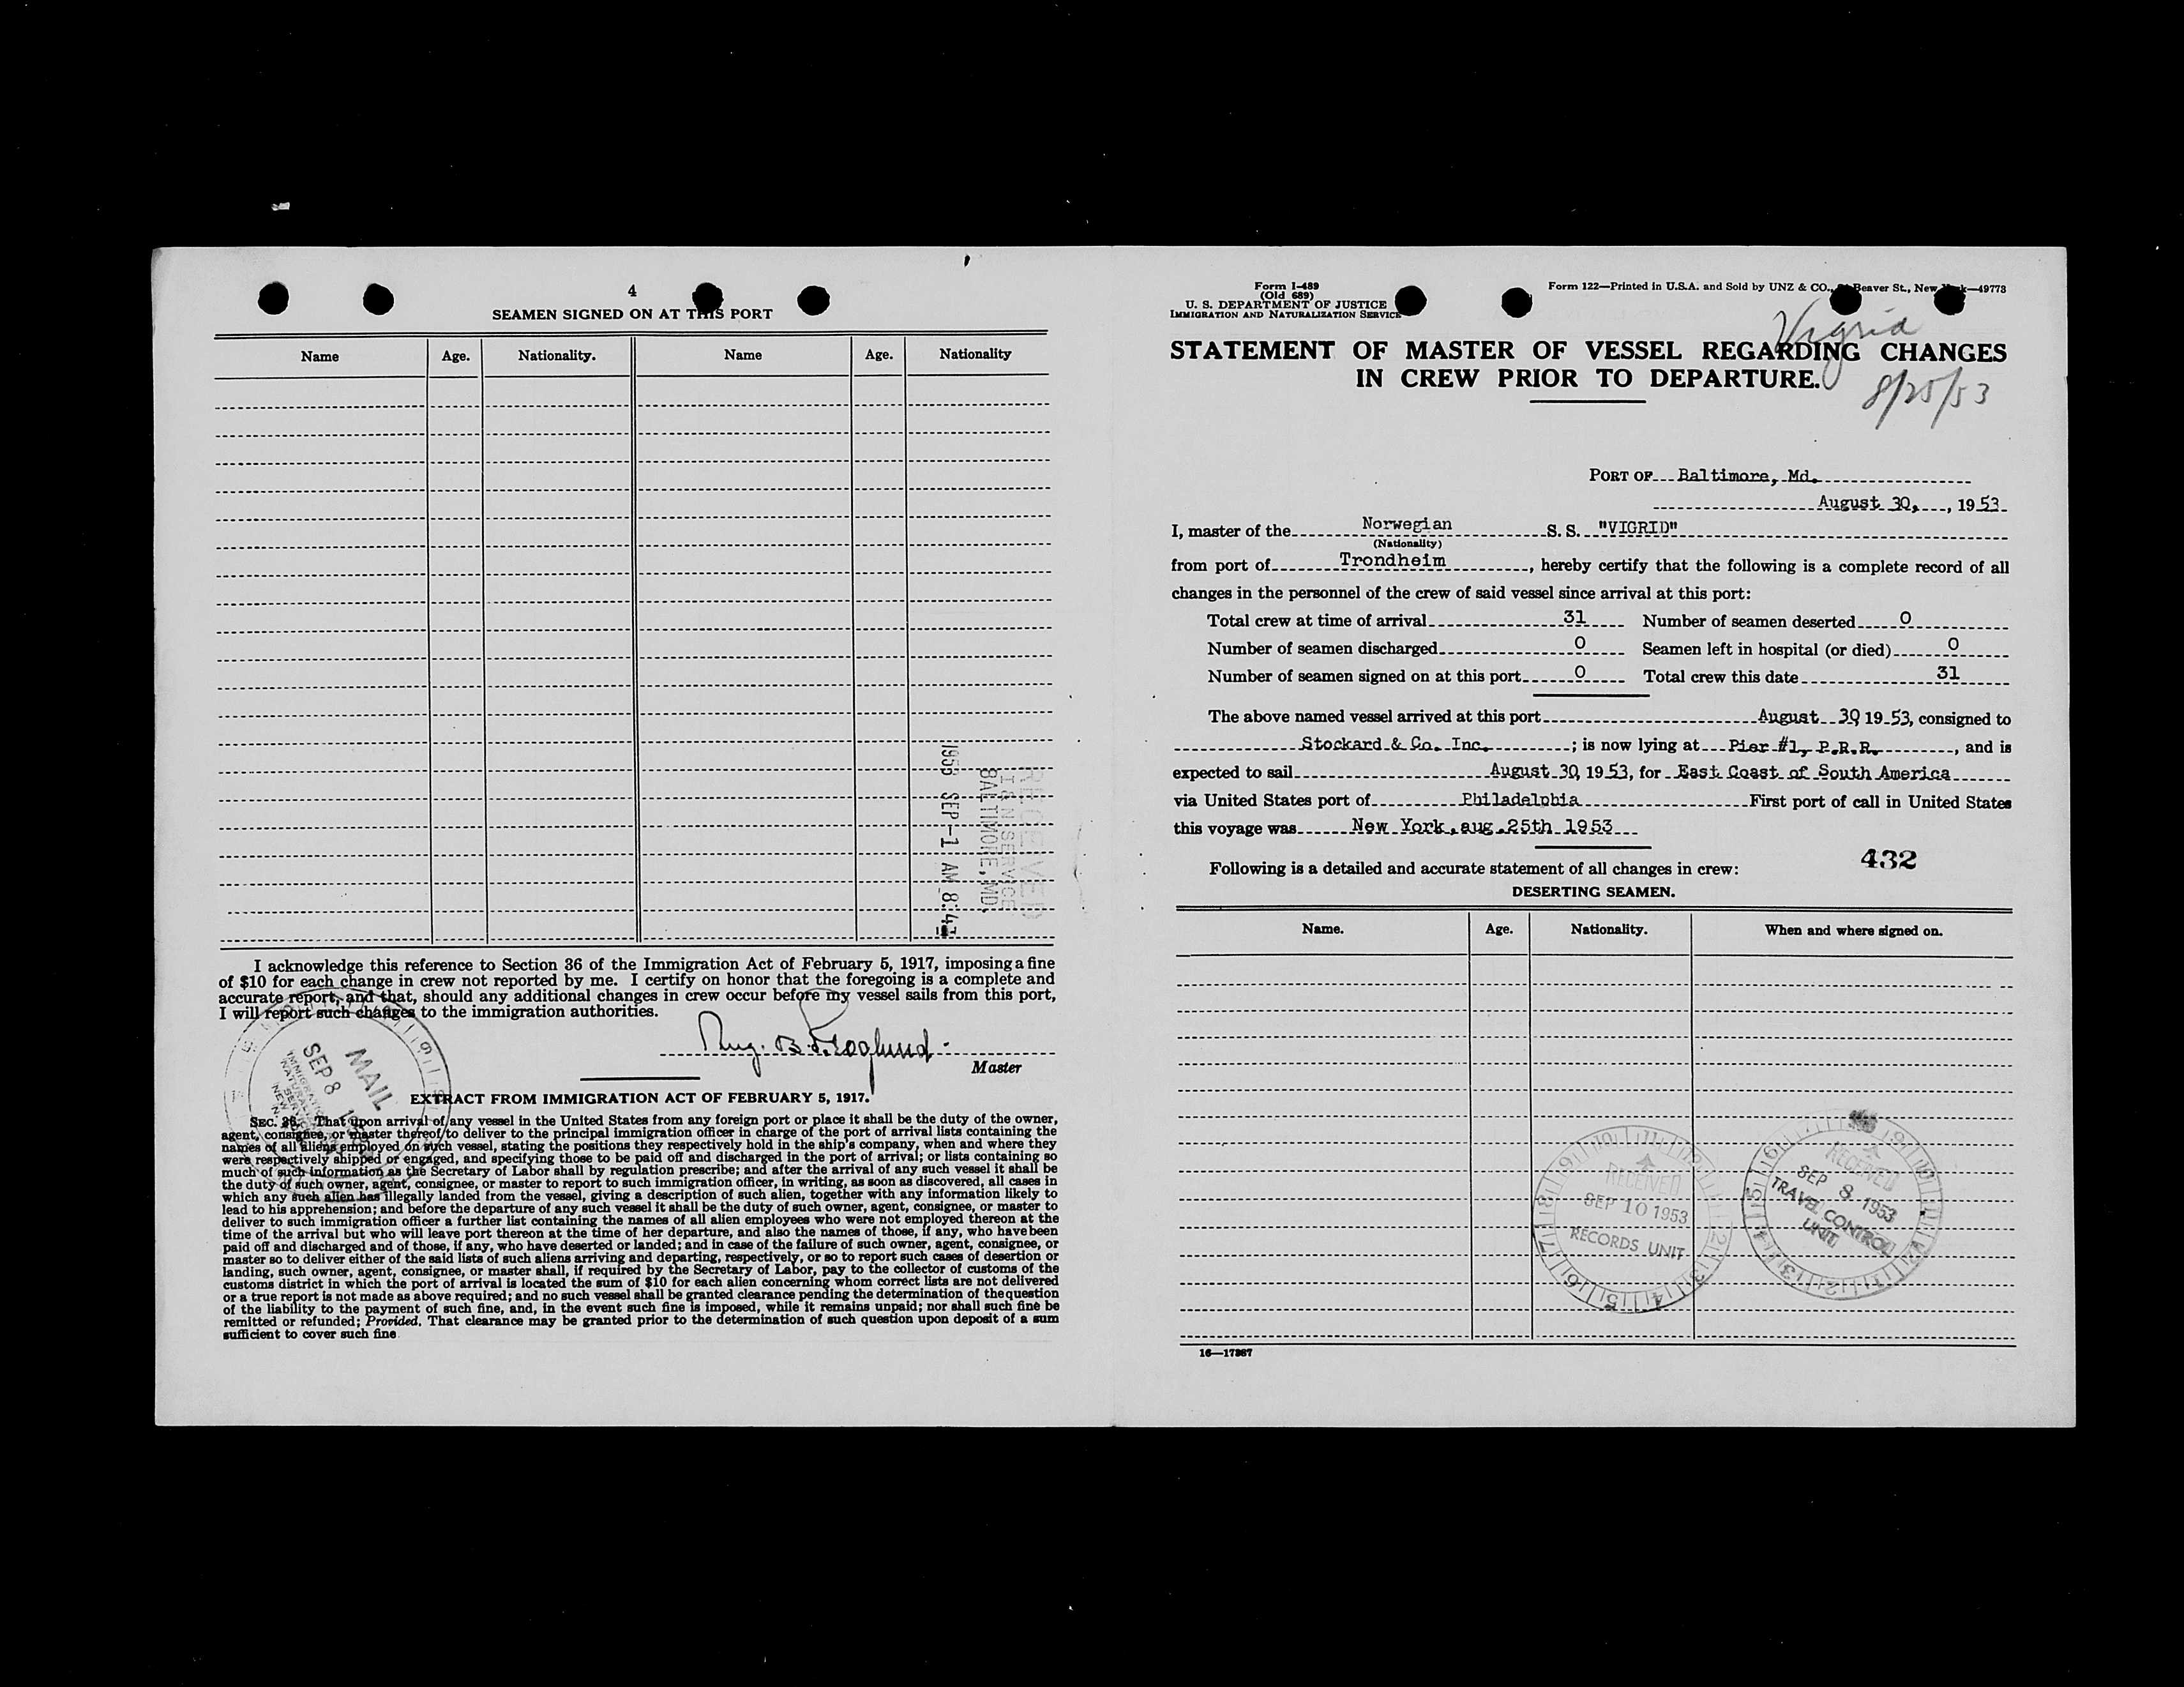 4
SEAMEN SIGNED ON AT THIS PORT
Name Age. Nationality. Name Age. Nationality
RECEIVED
I & N SERVICE
BALTIMORE, MD.
1953 SEP -1 AM 8:47
I acknowledge this reference to Section 36 of the Immigration Act of February 5, 1917, imposing a fine
of $10 for each change in crew not reported by me. I certify on honor that the foregoing is a complete and
accurate report, and that, should any additional changes in crew occur before my vessel sails from this port,
I will report such changes to the immigration authorities.
Master
MAIL
SEP 8
EXTRACT FROM IMMIGRATION ACT OF FEBRUARY 5, 1917.
SEC. 36. That upon arrival of any vessel in the United States from any foreign port or place it shall be the duty of the owner,
agent, consignee, or master thereof to deliver to the principal immigration officer in charge of the port of arrival lists containing the
names of all aliens employed on such vessel, stating the positions they respectively hold in the ship's company, when and where they
were respectively shipped or engaged, and specifying those to be paid off and discharged in the port of arrival; or lists containing so
much of such information as the Secretary of Labor shall by regulation prescribe; and after the arrival of any such vessel it shall be
the duty of such owner, agent, consignee, or master to report to such immigration officer, in writing, as soon as discovered, all cases in
which any such alien has illegally landed from the vessel, giving a description of such alien, together with any information likely to
lead to his apprehension; and before the departure of any such vessel it shall be the duty of such owner, agent, consignee, or master to
deliver to such immigration officer a further list containing the names of all alien employees who were not employed thereon at the
time of the arrival but who will leave port thereon at the time of her departure, and also the names of those, if any, who have been
paid off and discharged and of those, if any, who have deserted or landed; and in case of the failure of such owner, agent, consignee, or
master so to deliver either of the said lists of such aliens arriving and departing, respectively, or so to report such cases of desertion or
landing, such owner, agent, consignee, or master shall, if required by the Secretary of Labor, pay to the collector of customs of the
customs district in which the port of arrival is located the sum of $10 for each alien concerning whom correct lists are not delivered
or a true report is not made as above required; and no such vessel shall be granted clearance pending the determination of the question
of the liability to the payment of such fine, and, in the event such fine is imposed, while it remains unpaid; nor shall such fine be
remitted or refunded; Provided, That clearance may be granted prior to the determination of such question upon deposit of a sum
sufficient to cover such fine
Form I-489
(Old 689)
U. S. DEPARTMENT OF JUSTICE
IMMIGRATION AND NATURALIZATION SERVICE
Form 122—Printed in U.S.A. and Sold by UNZ & CO., Beaver St., New —49773
Vigrid
STATEMENT OF MASTER OF VESSEL REGARDING CHANGES
IN CREW PRIOR TO DEPARTURE.
8/25/53
PORT OF Baltimore, Md.
August 30, , 19 53
I, master of the Norwegian S. S. "VIGRID"
(Nationality)
from port of Trondheim , hereby certify that the following is a complete record of all
changes in the personnel of the crew of said vessel since arrival at this port:
Total crew at time of arrival 31 Number of seamen deserted 0
Number of seamen discharged 0 Seamen left in hospital (or died) 0
Number of seamen signed on at this port 0 Total crew this date 31
The above named vessel arrived at this port August 30 19 53, consigned to
Stockard & Co. Inc. ; is now lying at Pier #1, P.R.R. , and is
expected to sail August 30, 19 53, for East Coast of South America
via United States port of Philadelphia First port of call in United States
this voyage was New York, aug. 25th 1953
432
Following is a detailed and accurate statement of all changes in crew:
DESERTING SEAMEN.
Name. Age. Nationality. When and where signed on.
RECEIVED
SEP 10 1953
RECORDS UNIT
RECEIVED
SEP 8 1953
TRAVEL CONTROL
UNIT
16—17387